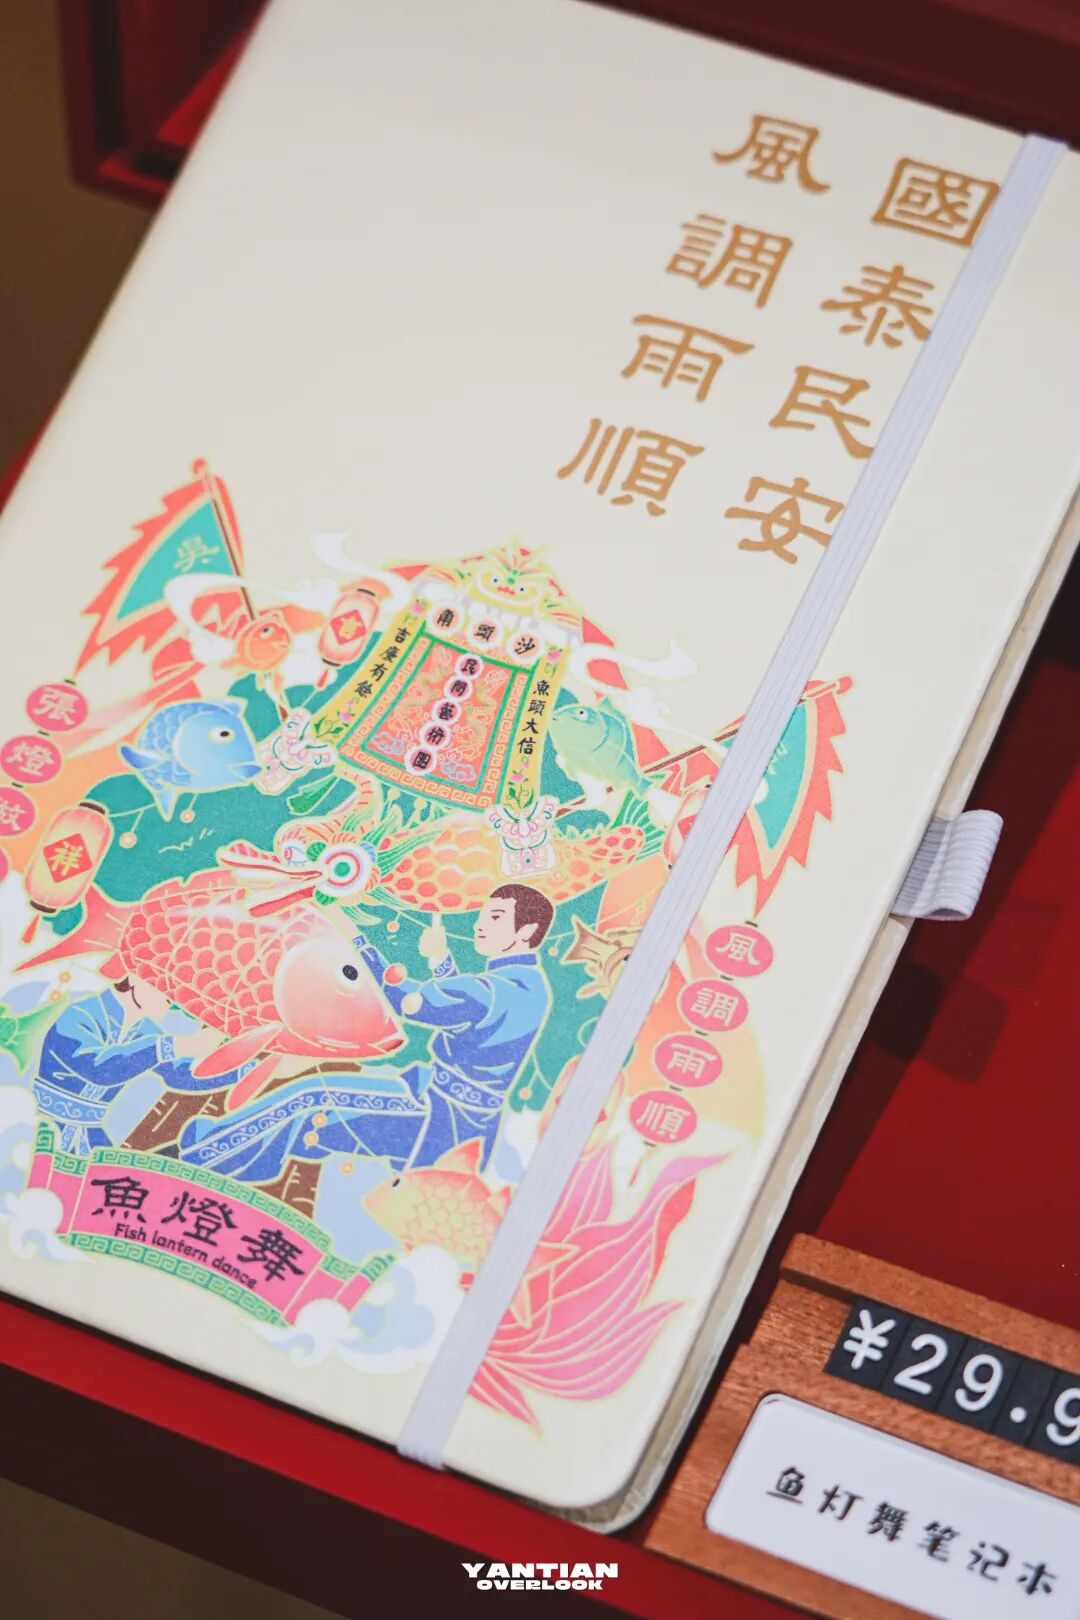 國泰民安
風調雨順
吳
吉
沙頭甬
魚頭大信
民間藝術團
吉慶有餘
張燈
祥
風調雨順
魚燈舞
Fish lantern dance
¥29.9
鱼灯舞笔记本
YANTIAN
OVERLOOK